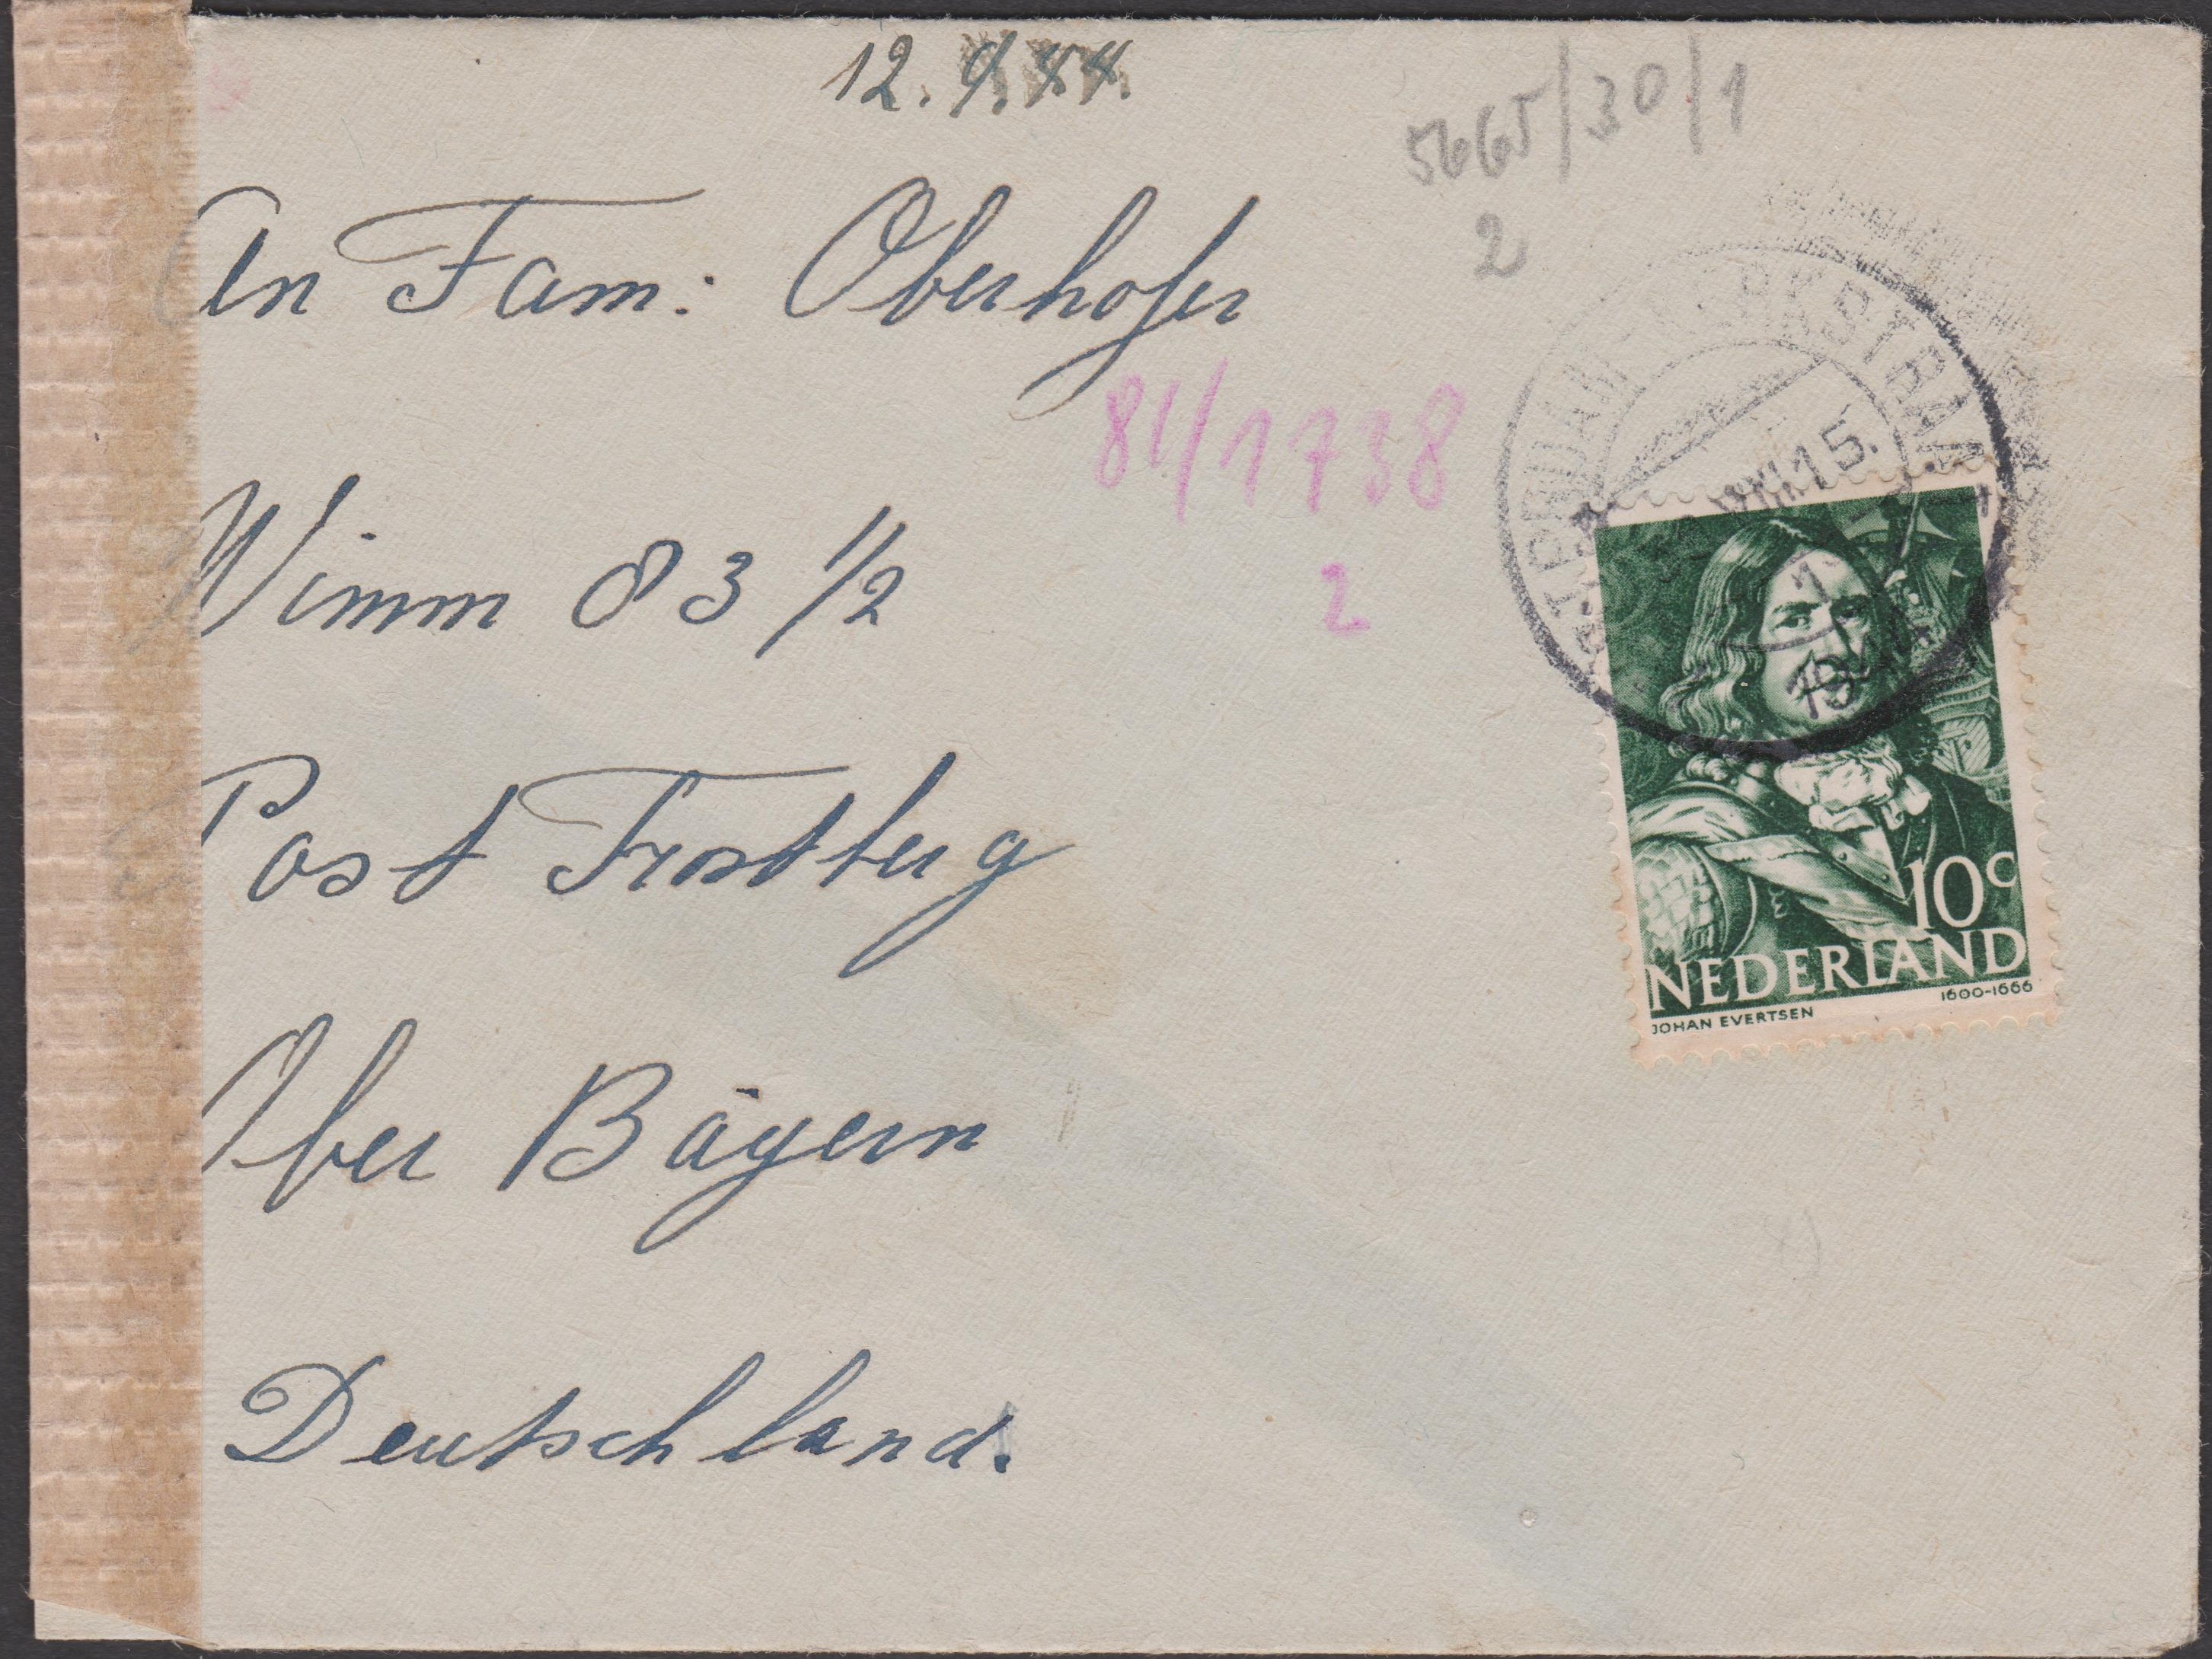 12. 9. 44.
5665/30/1
2
An Fam: Oberhofer
81/1738
2
Wimm 83 1/2
Post Trostberg
Ober Bayern
Deutschland.
15.
10 C
NEDERLAND
JOHAN EVERTSEN 1600-1666